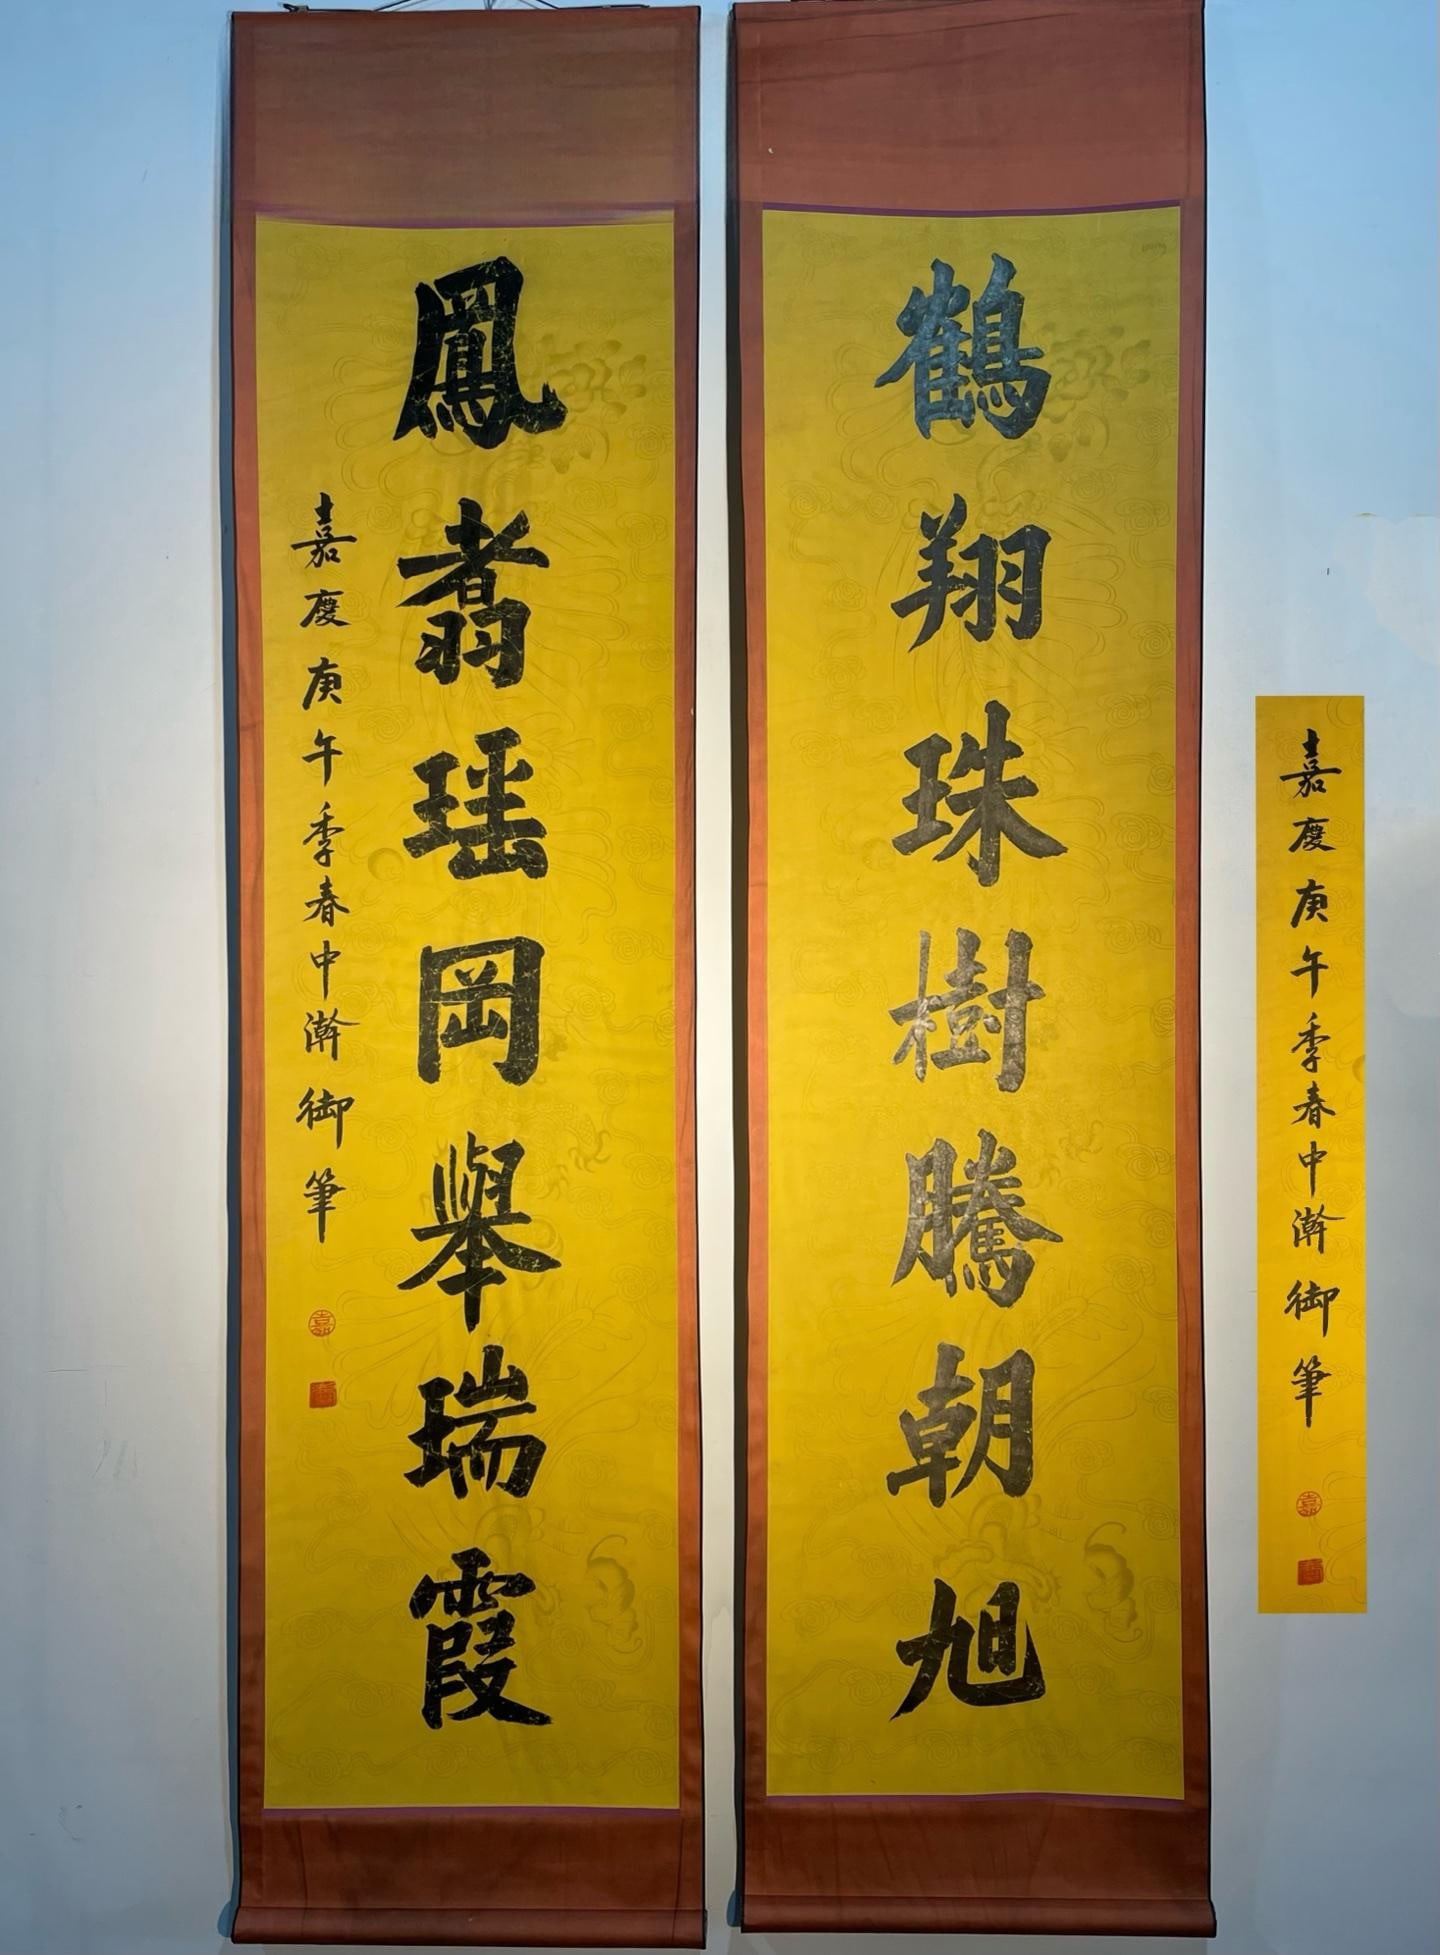 鶴翔珠樹騰朝旭
鳳翥瑤岡舉瑞霞
嘉慶庚午季春中澣御筆
嘉
嘉慶庚午季春中澣御筆
嘉